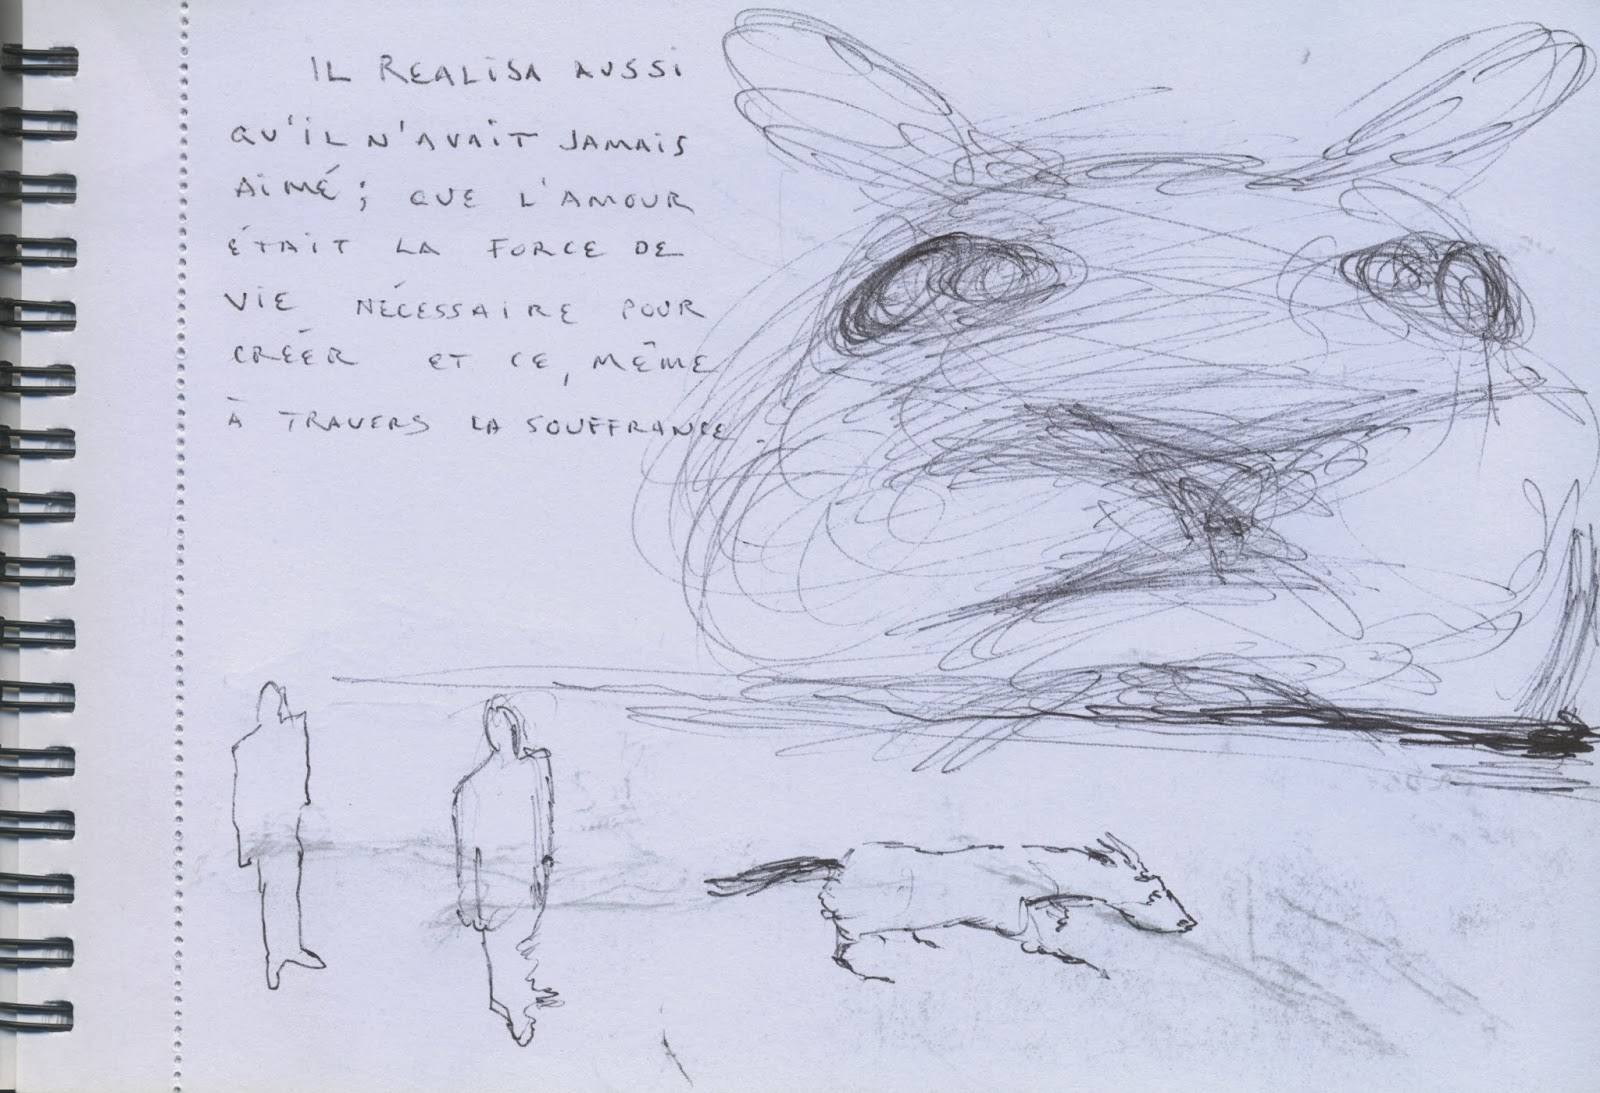 IL REALISA AUSSI
QU'IL N'AVAIT JAMAIS
AIMÉ; QUE L'AMOUR
ÉTAIT LA FORCE DE
VIE NÉCESSAIRE POUR
CRÉER ET CE, MÊME
À TRAVERS LA SOUFFRANCE.